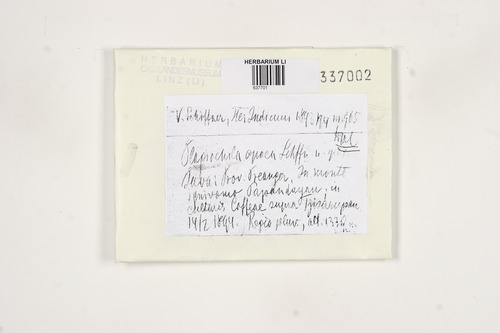 HERBARIUM
OÖ LANDESMUSEUM
LINZ (LI)
HERBARIUM LI
637701
337002
V. Schiffner, Iter Indicum 1893/94
Typ!
Plagiochila opaca Schffn.
Java: Prov. Preanger. In monte
ignivomo Papandayan, in
Coffeae supra
14/2 1894. Regio pluv., alt.